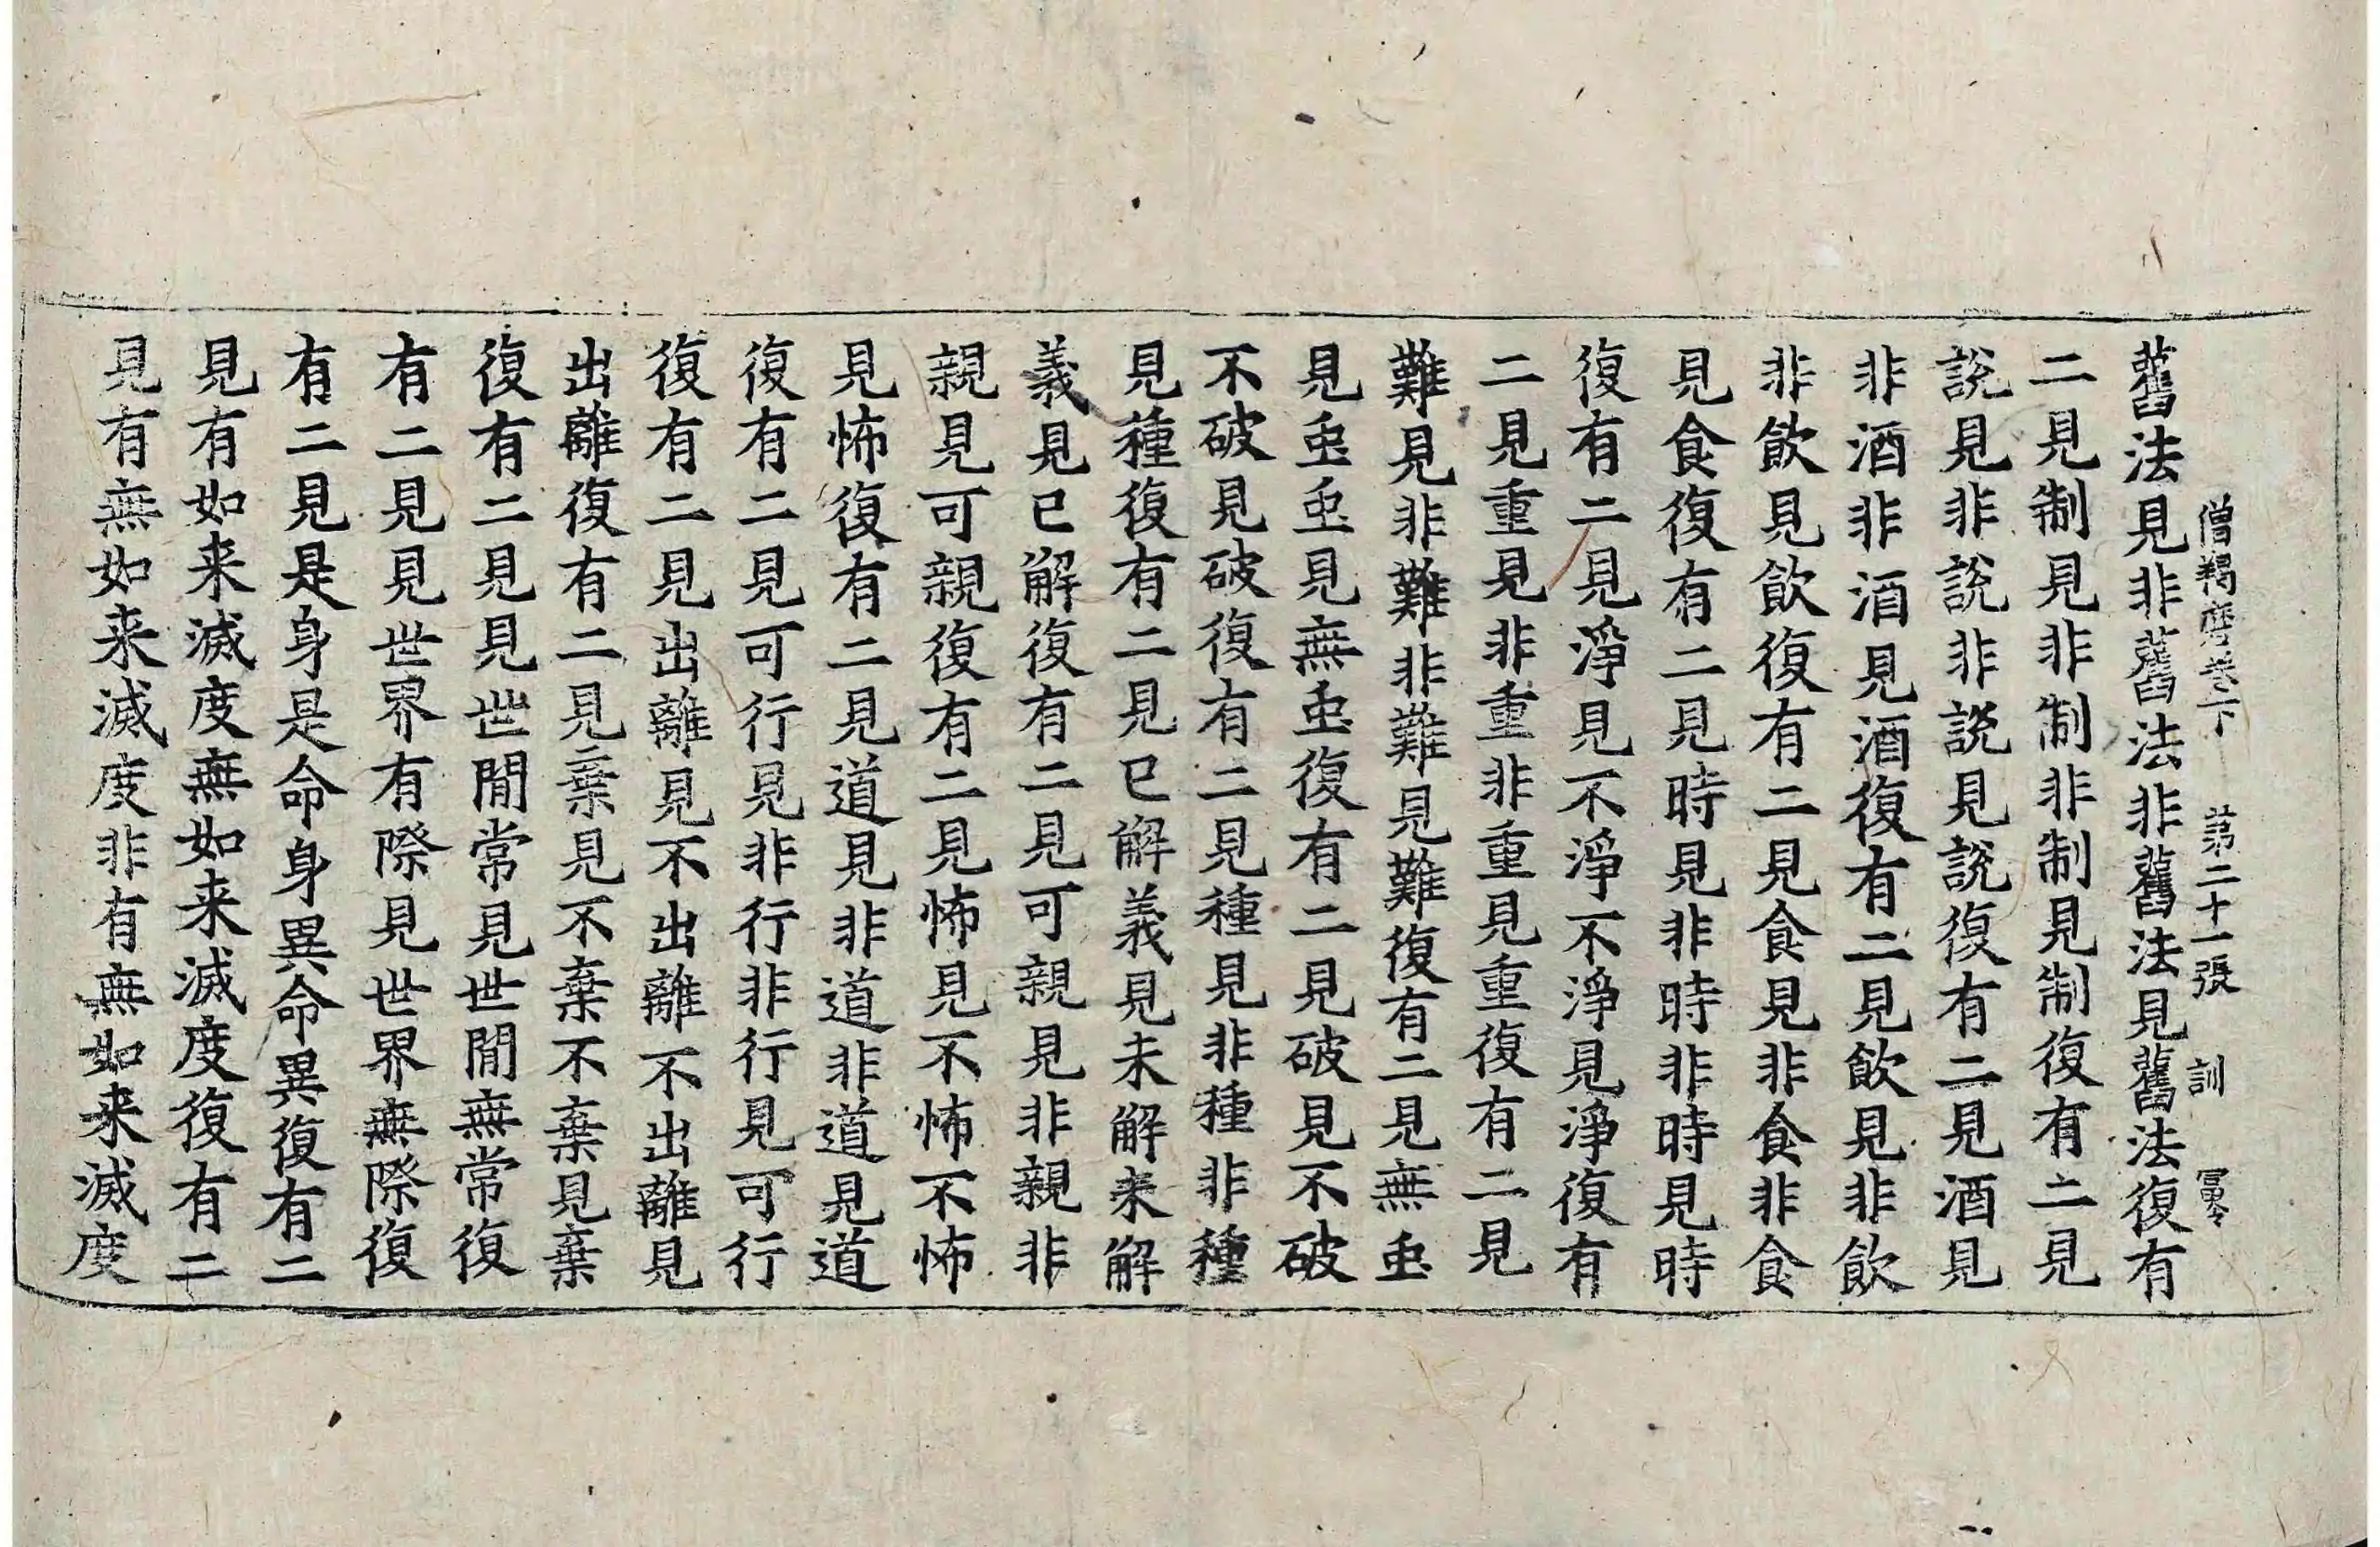 僧羯磨卷下　第二十一張　訓
舊法見非舊法非舊法見舊法復有
二見制見非制非制見制復有二見
說見非說非說見說復有二見酒見
非酒非酒見酒復有二見飲見非飲
非飲見飲復有二見食見非食非食
見食復有二見時見非時非時見時
復有二見淨見不淨不淨見淨復有
二見重見非重非重見重復有二見
難見非難非難見難復有二見無䖝
見䖝䖝見無䖝復有二見破見不破
不破見破復有二見種見非種非種
見種復有二見已解義見未解未解
義見已解復有二見可親見非親非
親見可親復有二見怖見不怖不怖
見怖復有二見道見非道非道見道
復有二見可行見非行非行見可行
復有二見出離見不出離不出離見
出離復有二見棄見不棄不棄見棄
復有二見見世間常見世間無常復
有二見見世界有際見世界無際復
有二見是身是命身異命異復有二
見有如来滅度無如来滅度復有二
見有無如来滅度非有無如来滅度